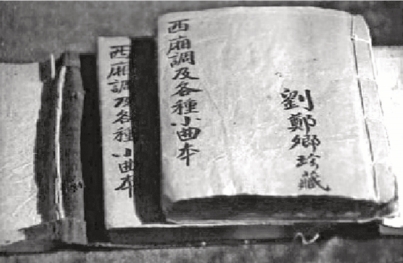 西廂調及各種小曲本
劉鄭鄉珍藏
西廂調及各種小曲本